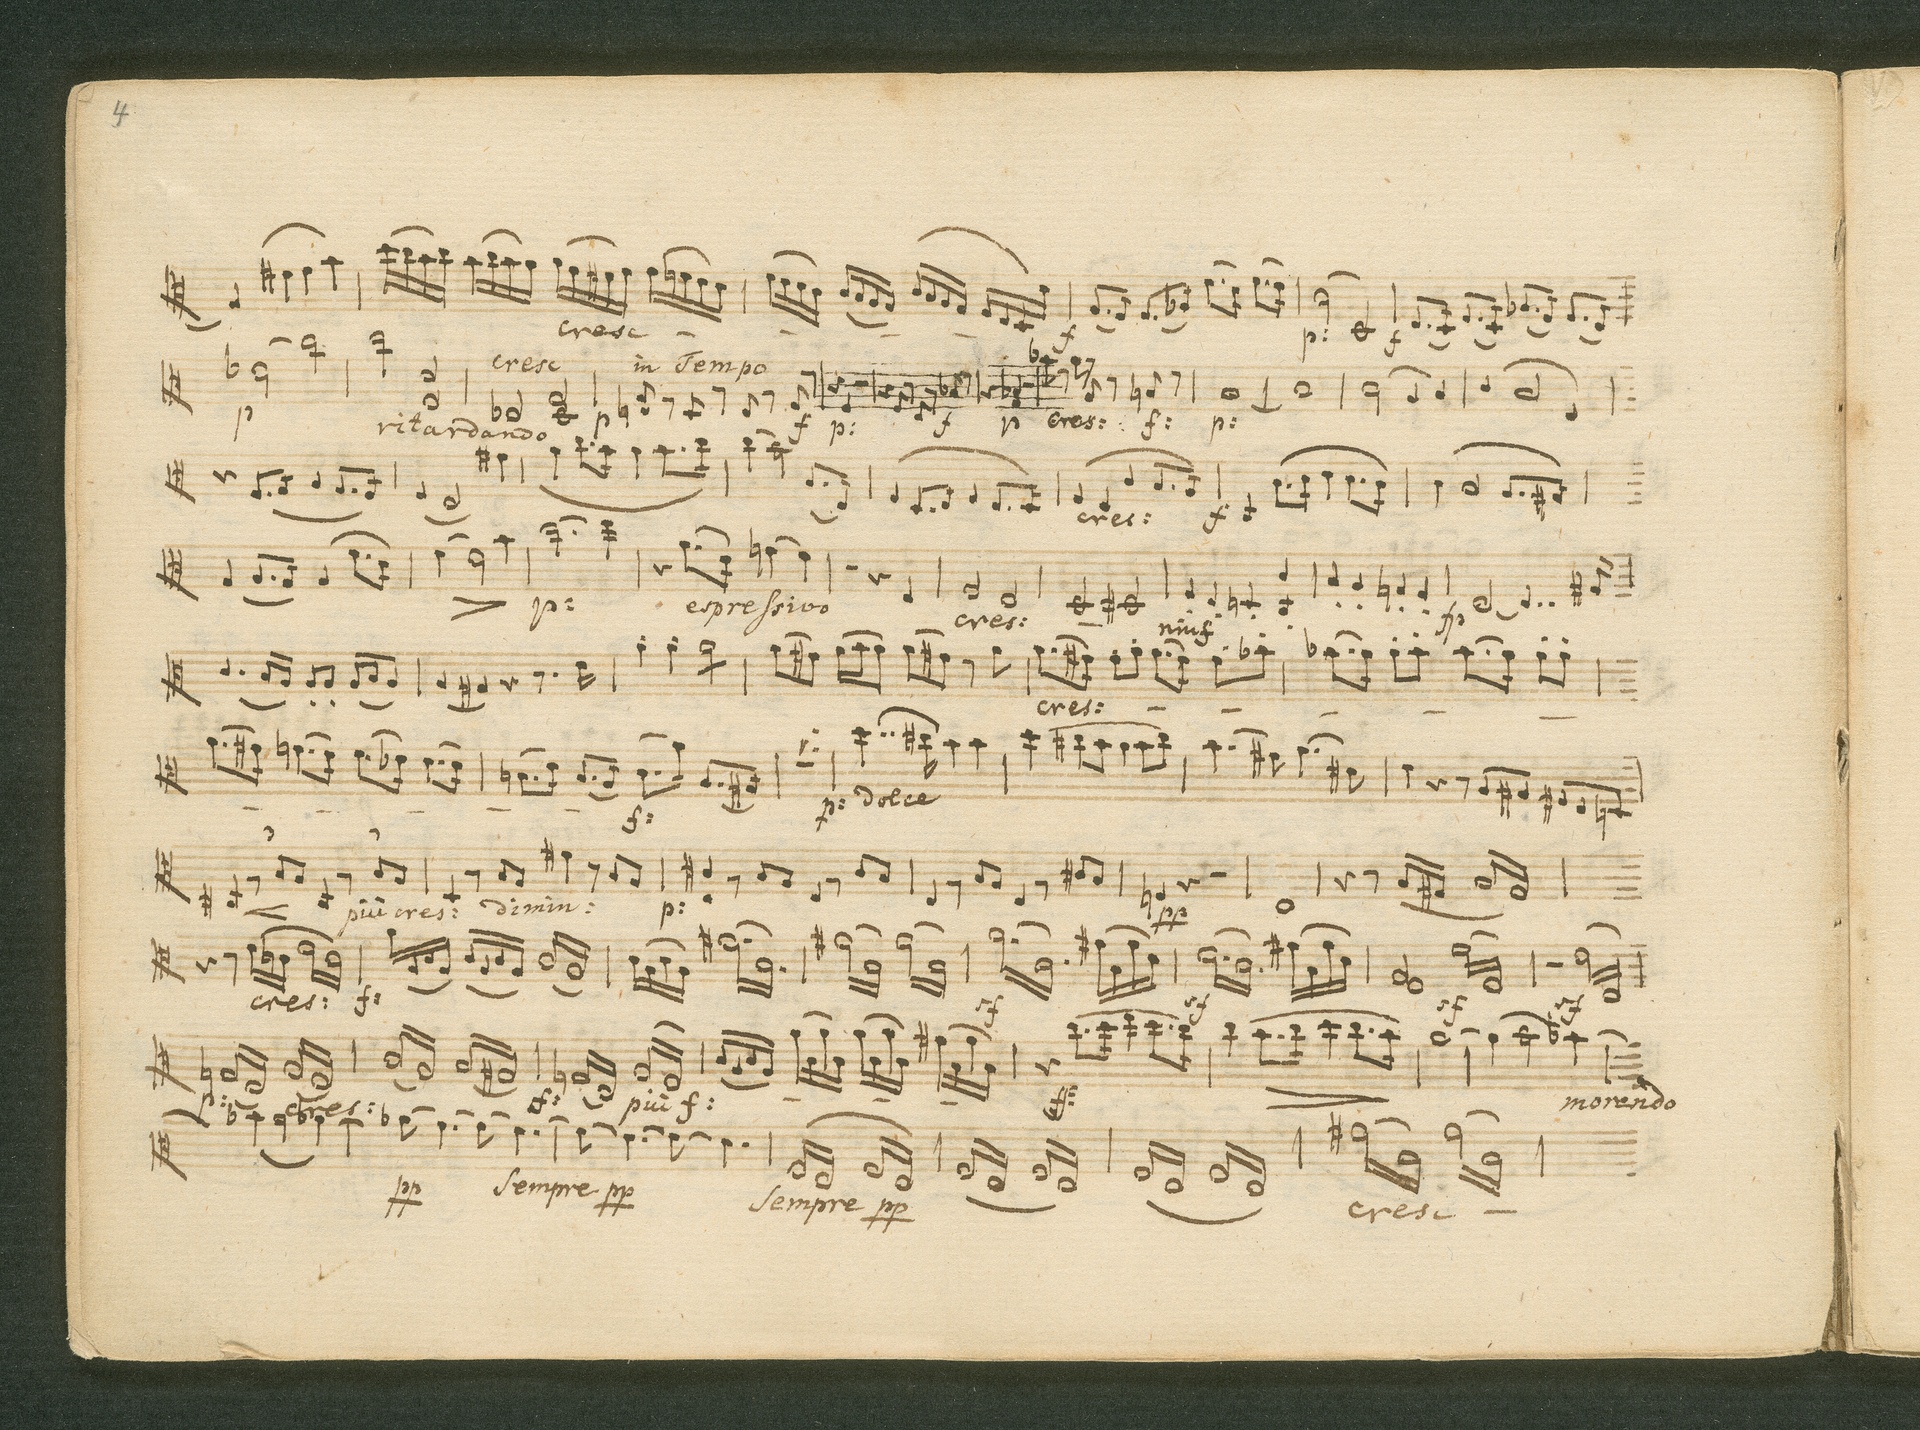 4
cresc - - - - f p: f
p ritardando cresc p in Tempo f p: f p cres: f: p:
cres: f:
p: espressivo cres: - più f fp
cres: - - - - -
- - - - - f: p: dolce
più cres: dimin: p: pp
cres: f: sf sf sf sf
p: cres: f: più f: - - - ff: morendo
pp Sempre pp Sempre pp cresc -